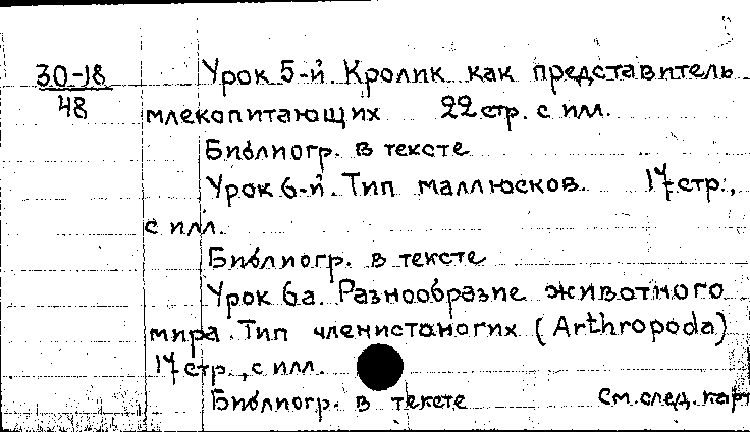 30-18 Урок 5-й. Кролик как представитель
48 млекопитающих 22 стр. с илл.
Библиогр. в тексте
Урок 6-й. Тип маллюсков. 17 стр.,
с илл.
Библиогр. в тексте
Урок 6а. Разнообразие животного
мира. Тип членистоногих (Arthropoda)
17 стр., с илл.
Библиогр. в тексте См. след. карт